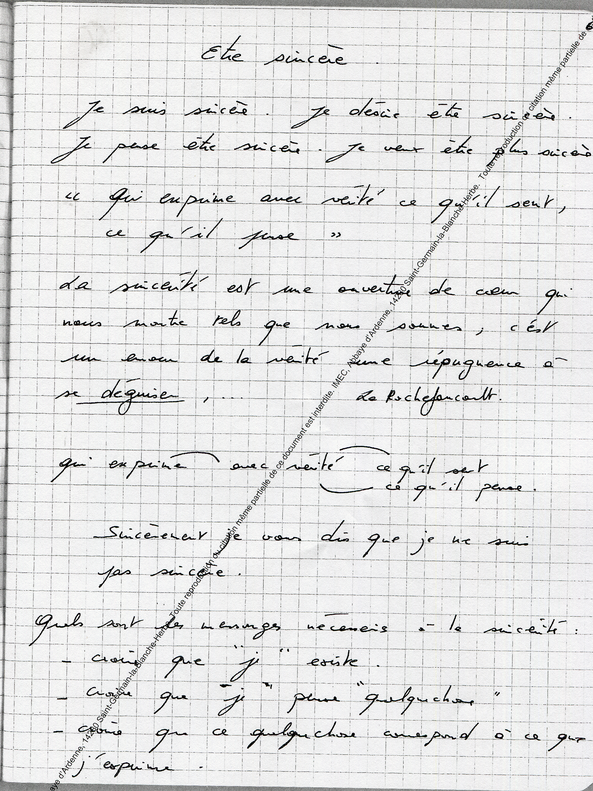 6
Etre sincère.
Je suis sincère. Je désire être sincère.
Je pense être sincère. Je veux être plus sincère
" Qui exprime avec vérité ce qu'il sent,
ce qu'il pense "
La sincérité est une ouverture de cœur qui
nous montre tels que nous sommes, c'est
un amour de la vérité une répugnance à
se déguiser, ... La Rochefoucault.
qui exprime avec vérité ce qu'il sent
ce qu'il pense.
Sincèrement je vous dis que je ne suis
pas sincère.
Quels sont les mensonges nécessaires à la sincérité :
- croire que "je" existe.
- croire que "je" pense "quelquechose"
- croire que ce quelquechose correspond à ce que
j'exprime.
IMEC, Abbaye d'Ardenne, 14280 Saint-Germain-la-Blanche-Herbe. Toute reproduction ou citation même partielle de ce document est interdite.